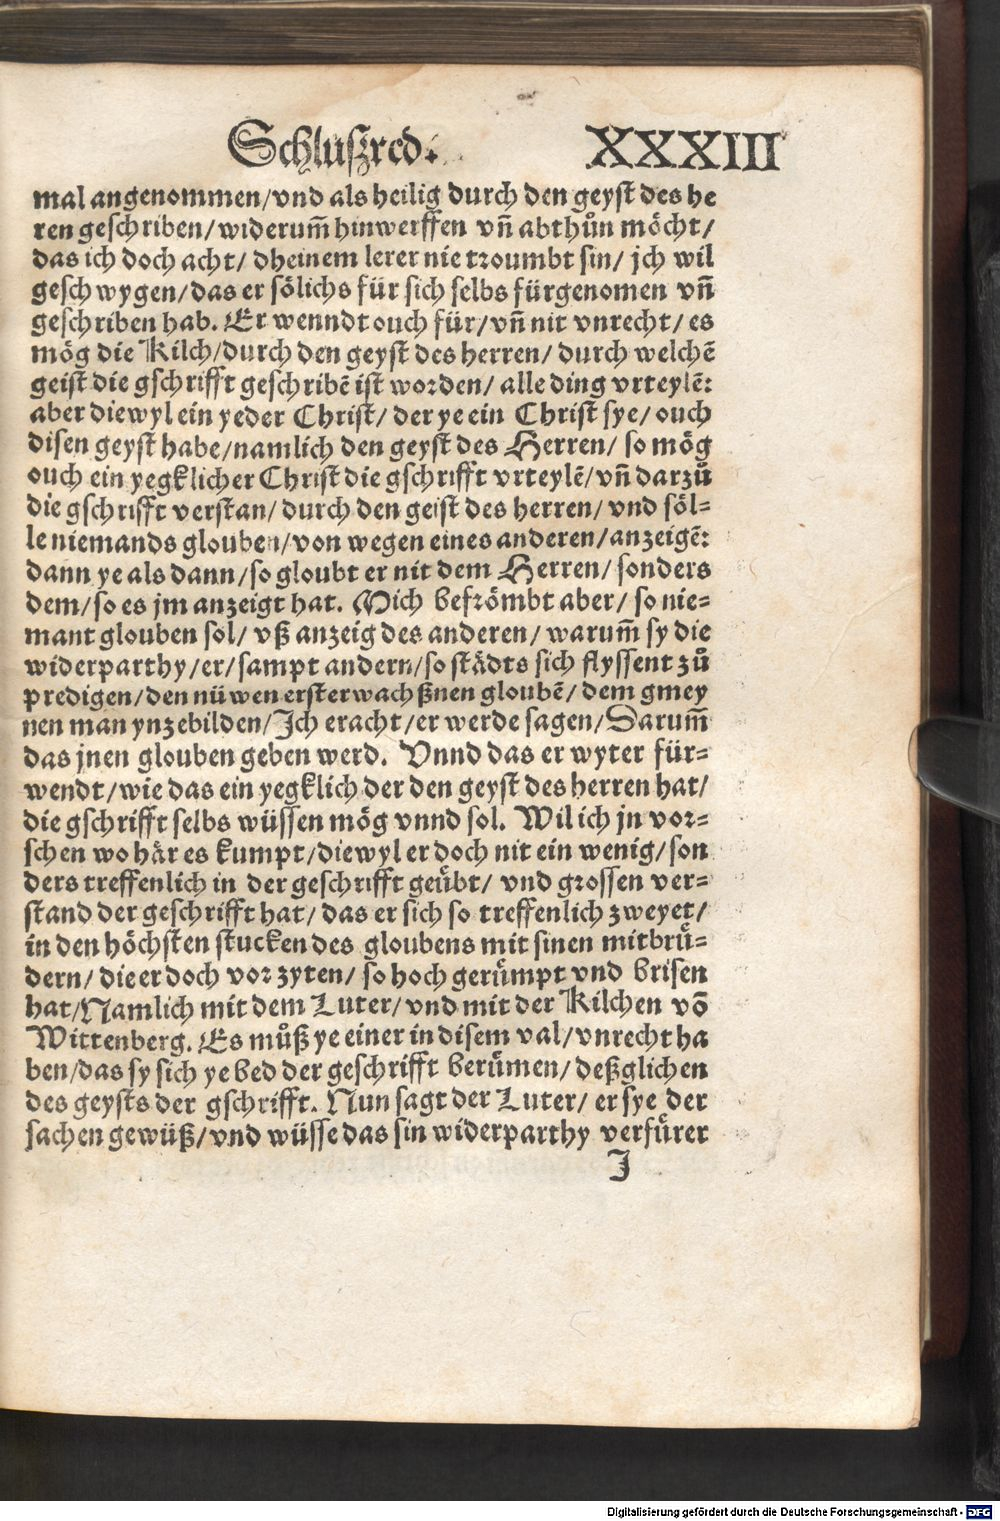 Schluſzred. XXXIII
mal angenommen/vnd als heilig durch den geyſt des he
ren geſchriben/widerum̃ hinwerffen vñ abthůn möcht/
das ich doch acht/ dheinem lerer nie troumbt ſin/ jch wil
geſchwygen/das er ſölichs für ſich ſelbs fürgenomen vñ
geſchriben hab. Er wenndt ouch für/vñ nit vnrecht/ es
mög die Kilch/durch den geyſt des herren/ durch welchẽ
geiſt die gſchrifft geſchribẽ iſt worden/ alle ding vrteylẽ:
aber diewyl ein yeder Chriſt/ der ye ein Chriſt ſye/ ouch
diſen geyſt habe/namlich den geyſt des Herren/ ſo mög
ouch ein yegklicher Chriſt die gſchrifft vrteylẽ/vñ darzů
die gſchrifft verſtan/ durch den geiſt des herren/ vnd ſöl-
le niemands glouben/von wegen eines anderen/anzeigẽ:
dann ye als dann/ſo gloubt er nit dem Herren/ ſonders
dem/ſo es jm anzeigt hat. Mich befrömbt aber/ ſo nie-
mant glouben ſol/ vß anzeig des anderen/ warum̃ ſy die
widerparthy/er/ſampt andern/ſo ſtädts ſich flyſſent zů
predigen/den nüwen erſterwachßnen gloubẽ/ dem gmey
nen man ynzebilden/Ich eracht/er werde ſagen/Darum̃
das jnen glouben geben werd. Vnnd das er wyter für-
wendt/wie das ein yegklich der den geyſt des herren hat/
die gſchrifft ſelbs wüſſen mög vnnd ſol. Wil ich jn vor-
ſchen wo här es kumpt/diewyl er doch nit ein wenig/ſon
ders treffenlich in der geſchrifft geübt/ vnd groſſen ver-
ſtand der geſchrifft hat/ das er ſich ſo treffenlich zweyet/
in den höchſten ſtucken des gloubens mit ſinen mitbrü-
dern/ die er doch vor zyten/ ſo hoch gerümpt vnd briſen
hat/Namlich mit dem Luter/ vnd mit der Kilchen võ
Wittenberg. Es můß ye einer in diſem val/vnrecht ha
ben/das ſy ſich ye bed der geſchrifft berümen/ deßglichen
des geyſts der gſchrifft. Nun ſagt der Luter/ er ſye der
ſachen gewüß/vnd wüſſe das ſin widerparthy verfürer
J
Digitalisierung gefördert durch die Deutsche Forschungsgemeinschaft - DFG